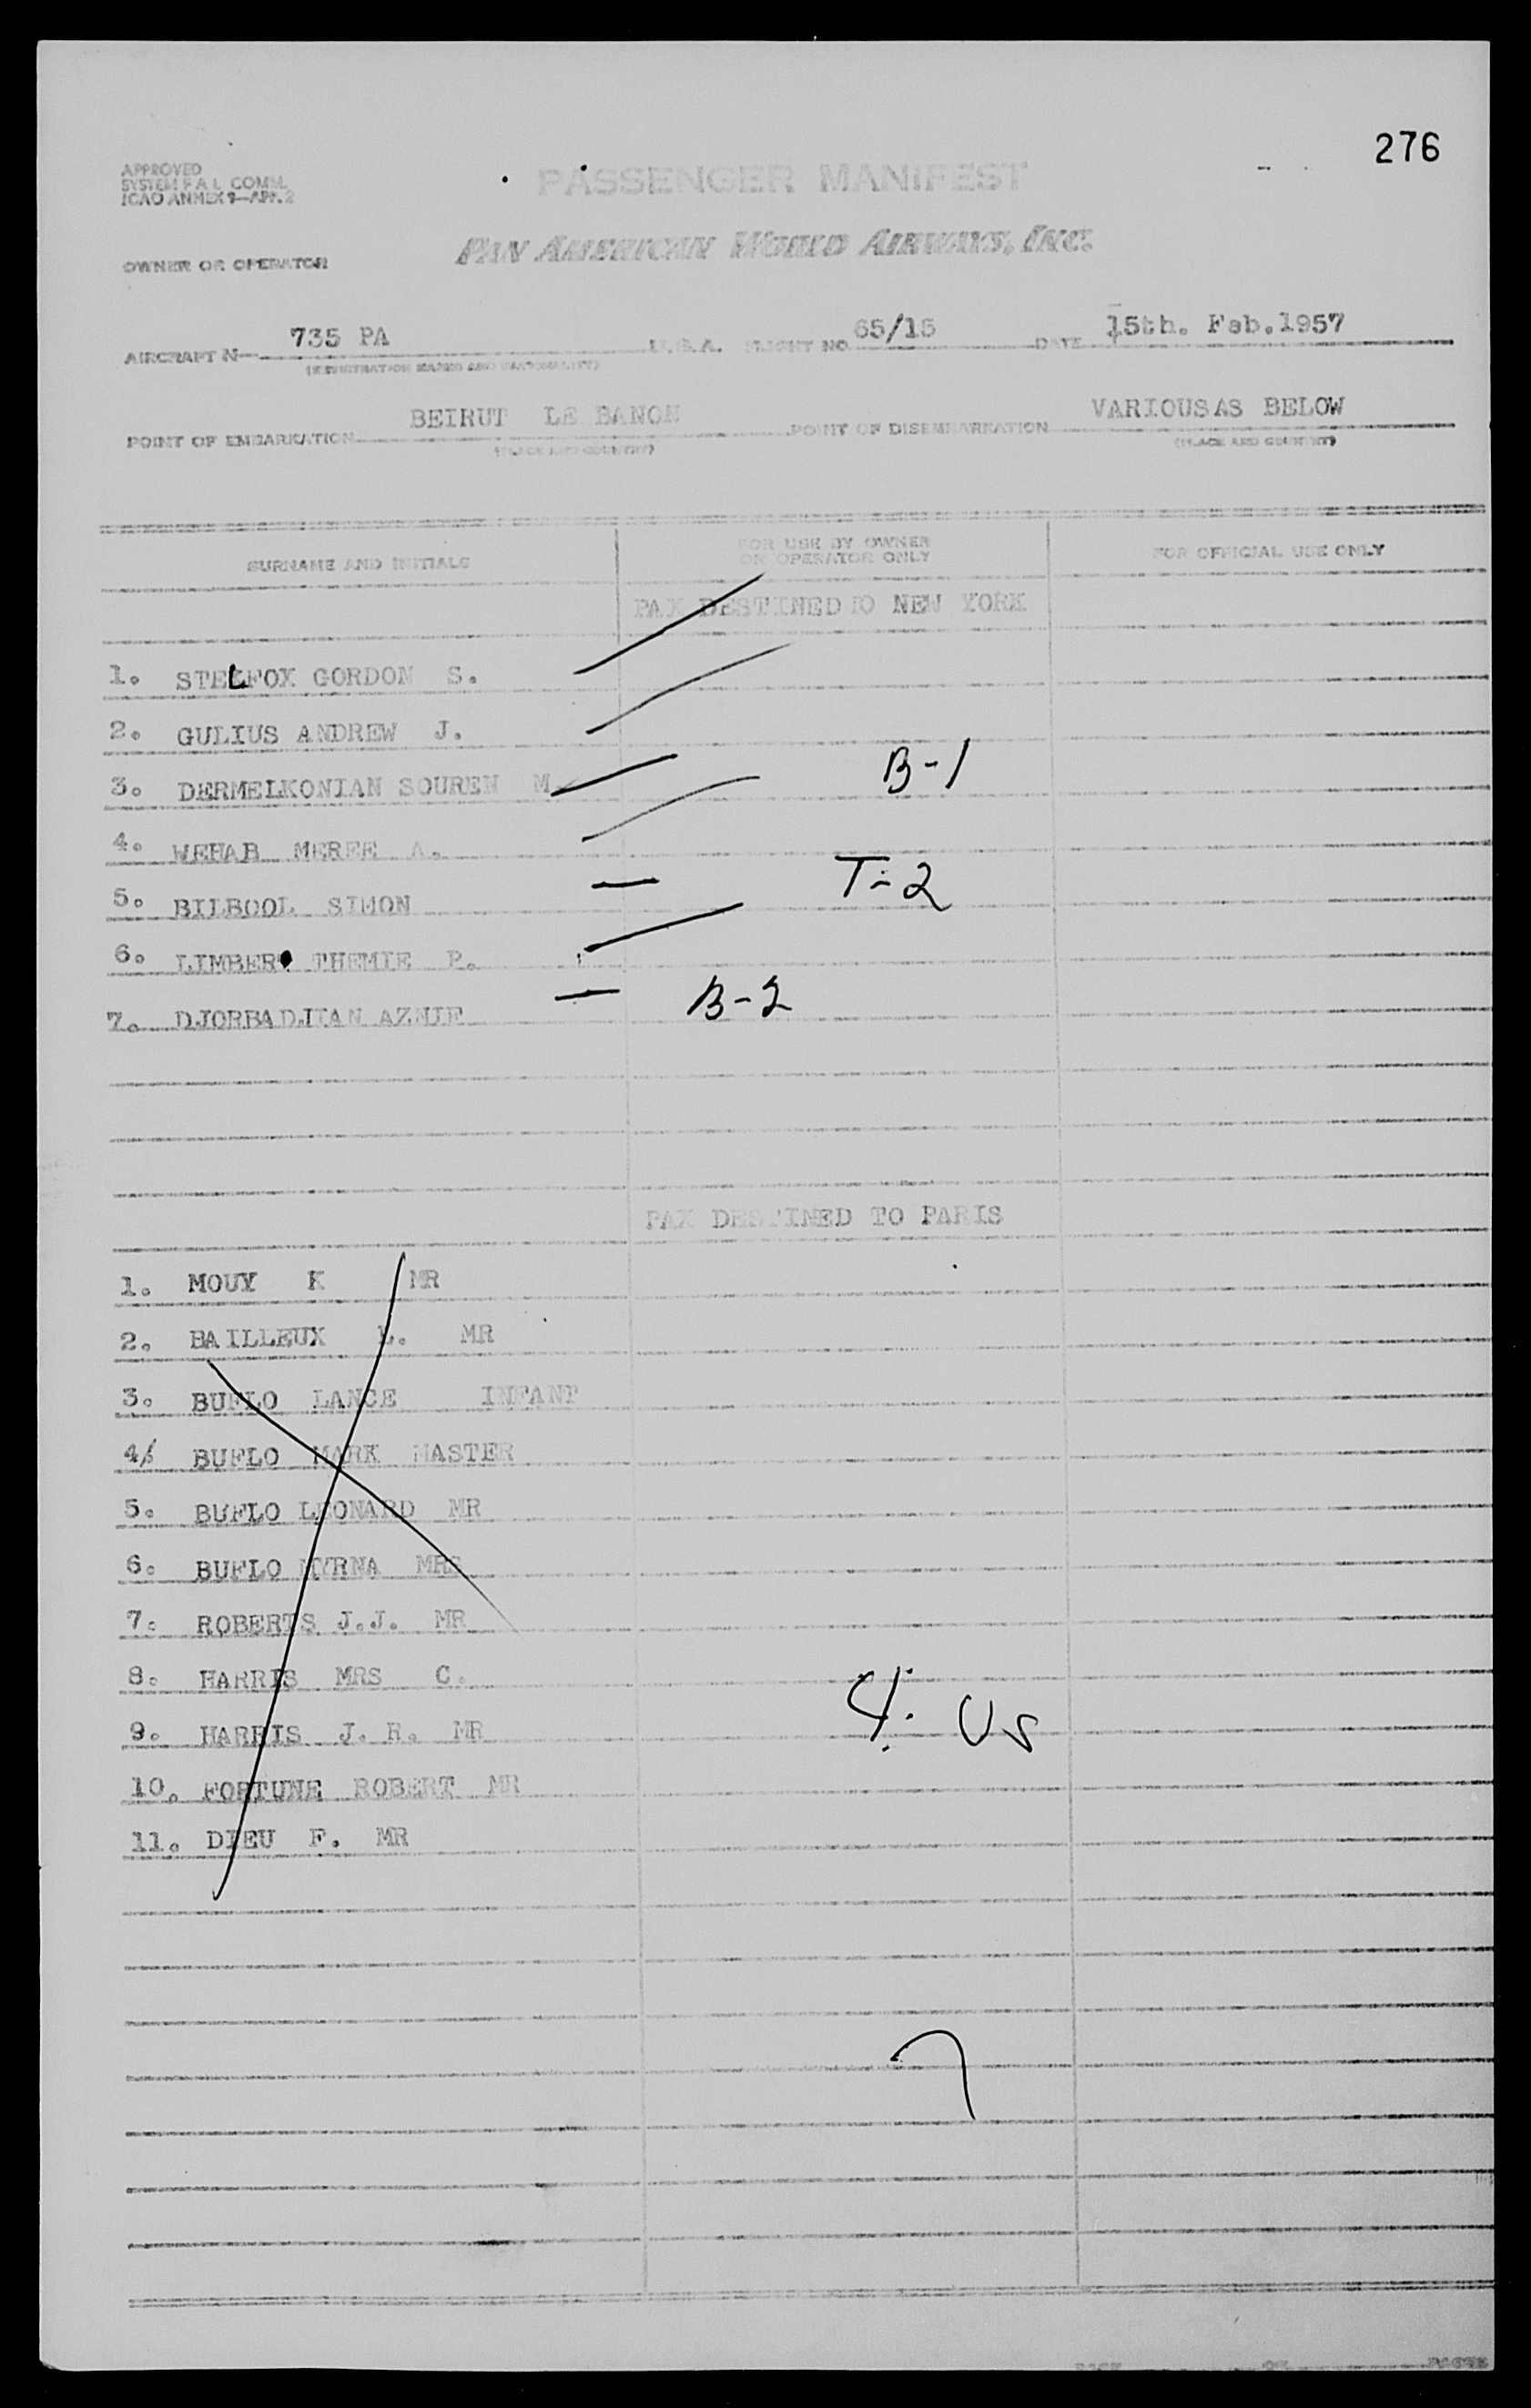 276
APPROVED
SYSTEM F A L COMM.
ICAO ANNEX 9—APP. 2
PASSENGER MANIFEST
OWNER OR OPERATOR
PAN AMERICAN WORLD AIRWAYS, INC.
AIRCRAFT N— 735 PA U.S.A. FLIGHT NO 65/15 DATE 15th. Feb.1957
(REGISTRATION MARKS AND NATIONALITY)
POINT OF EMBARKATION BEIRUT LE BANON POINT OF DISEMBARKATION VARIOUSAS BELOW
(PLACE AND COUNTRY) (PLACE AND COUNTRY)
SURNAME AND INITIALS FOR USE BY OWNER OR OPERATOR ONLY FOR OFFICIAL USE ONLY
PAX DESTINED TO NEW YORK
1. STELFOX GORDON S.
2. GULIUS ANDREW J.
3. DERMELKONIAN SOUREN M. B-1
4. WEHAB MEREE A.
5. BILBOOL SIMON T-2
6. LIMBER THEMIE P.
7. DJORBADJIAN AZNIF B-2
PAX DESTINED TO PARIS
1. MOUY K MR
2. BAILLEUX L. MR
3. BUFLO LANCE INFANT
4. BUFLO MARK MASTER
5. BUFLO LEONARD MR
6. BUFLO MYRNA MRS
7. ROBERTS J.J. MR
8. HARRIS MRS C.
9. HARRIS J. R. MR 4: US
10. FORTUNE ROBERT MR
11. DIEU F. MR
7
PAGE OF PAGES